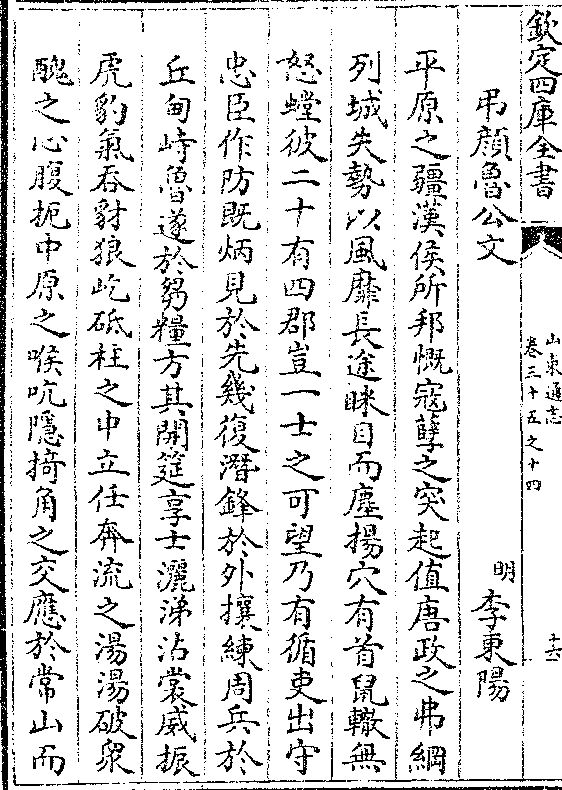 欽定四庫全書
山東通志
卷三十五之十四
十六
弔顏魯公文
明
李東陽
平原之疆漢侯所邦慨寇孽之突起值唐政之弗綱
列城失勢以風靡長途眯目而塵揚穴有首鼠轍無
怒螳彼二十有四郡豈一士之可望乃有循吏出守
忠臣作防既炳見於先幾復潛鋒於外攘練周兵於
丘甸峙魯遂於芻糧方其開筵享士灑涕沾裳威振
虎豹氣吞豺狼屹砥柱之中立任奔流之湯湯破衆
醜之心腹扼中原之喉吭隱掎角之交應於常山而